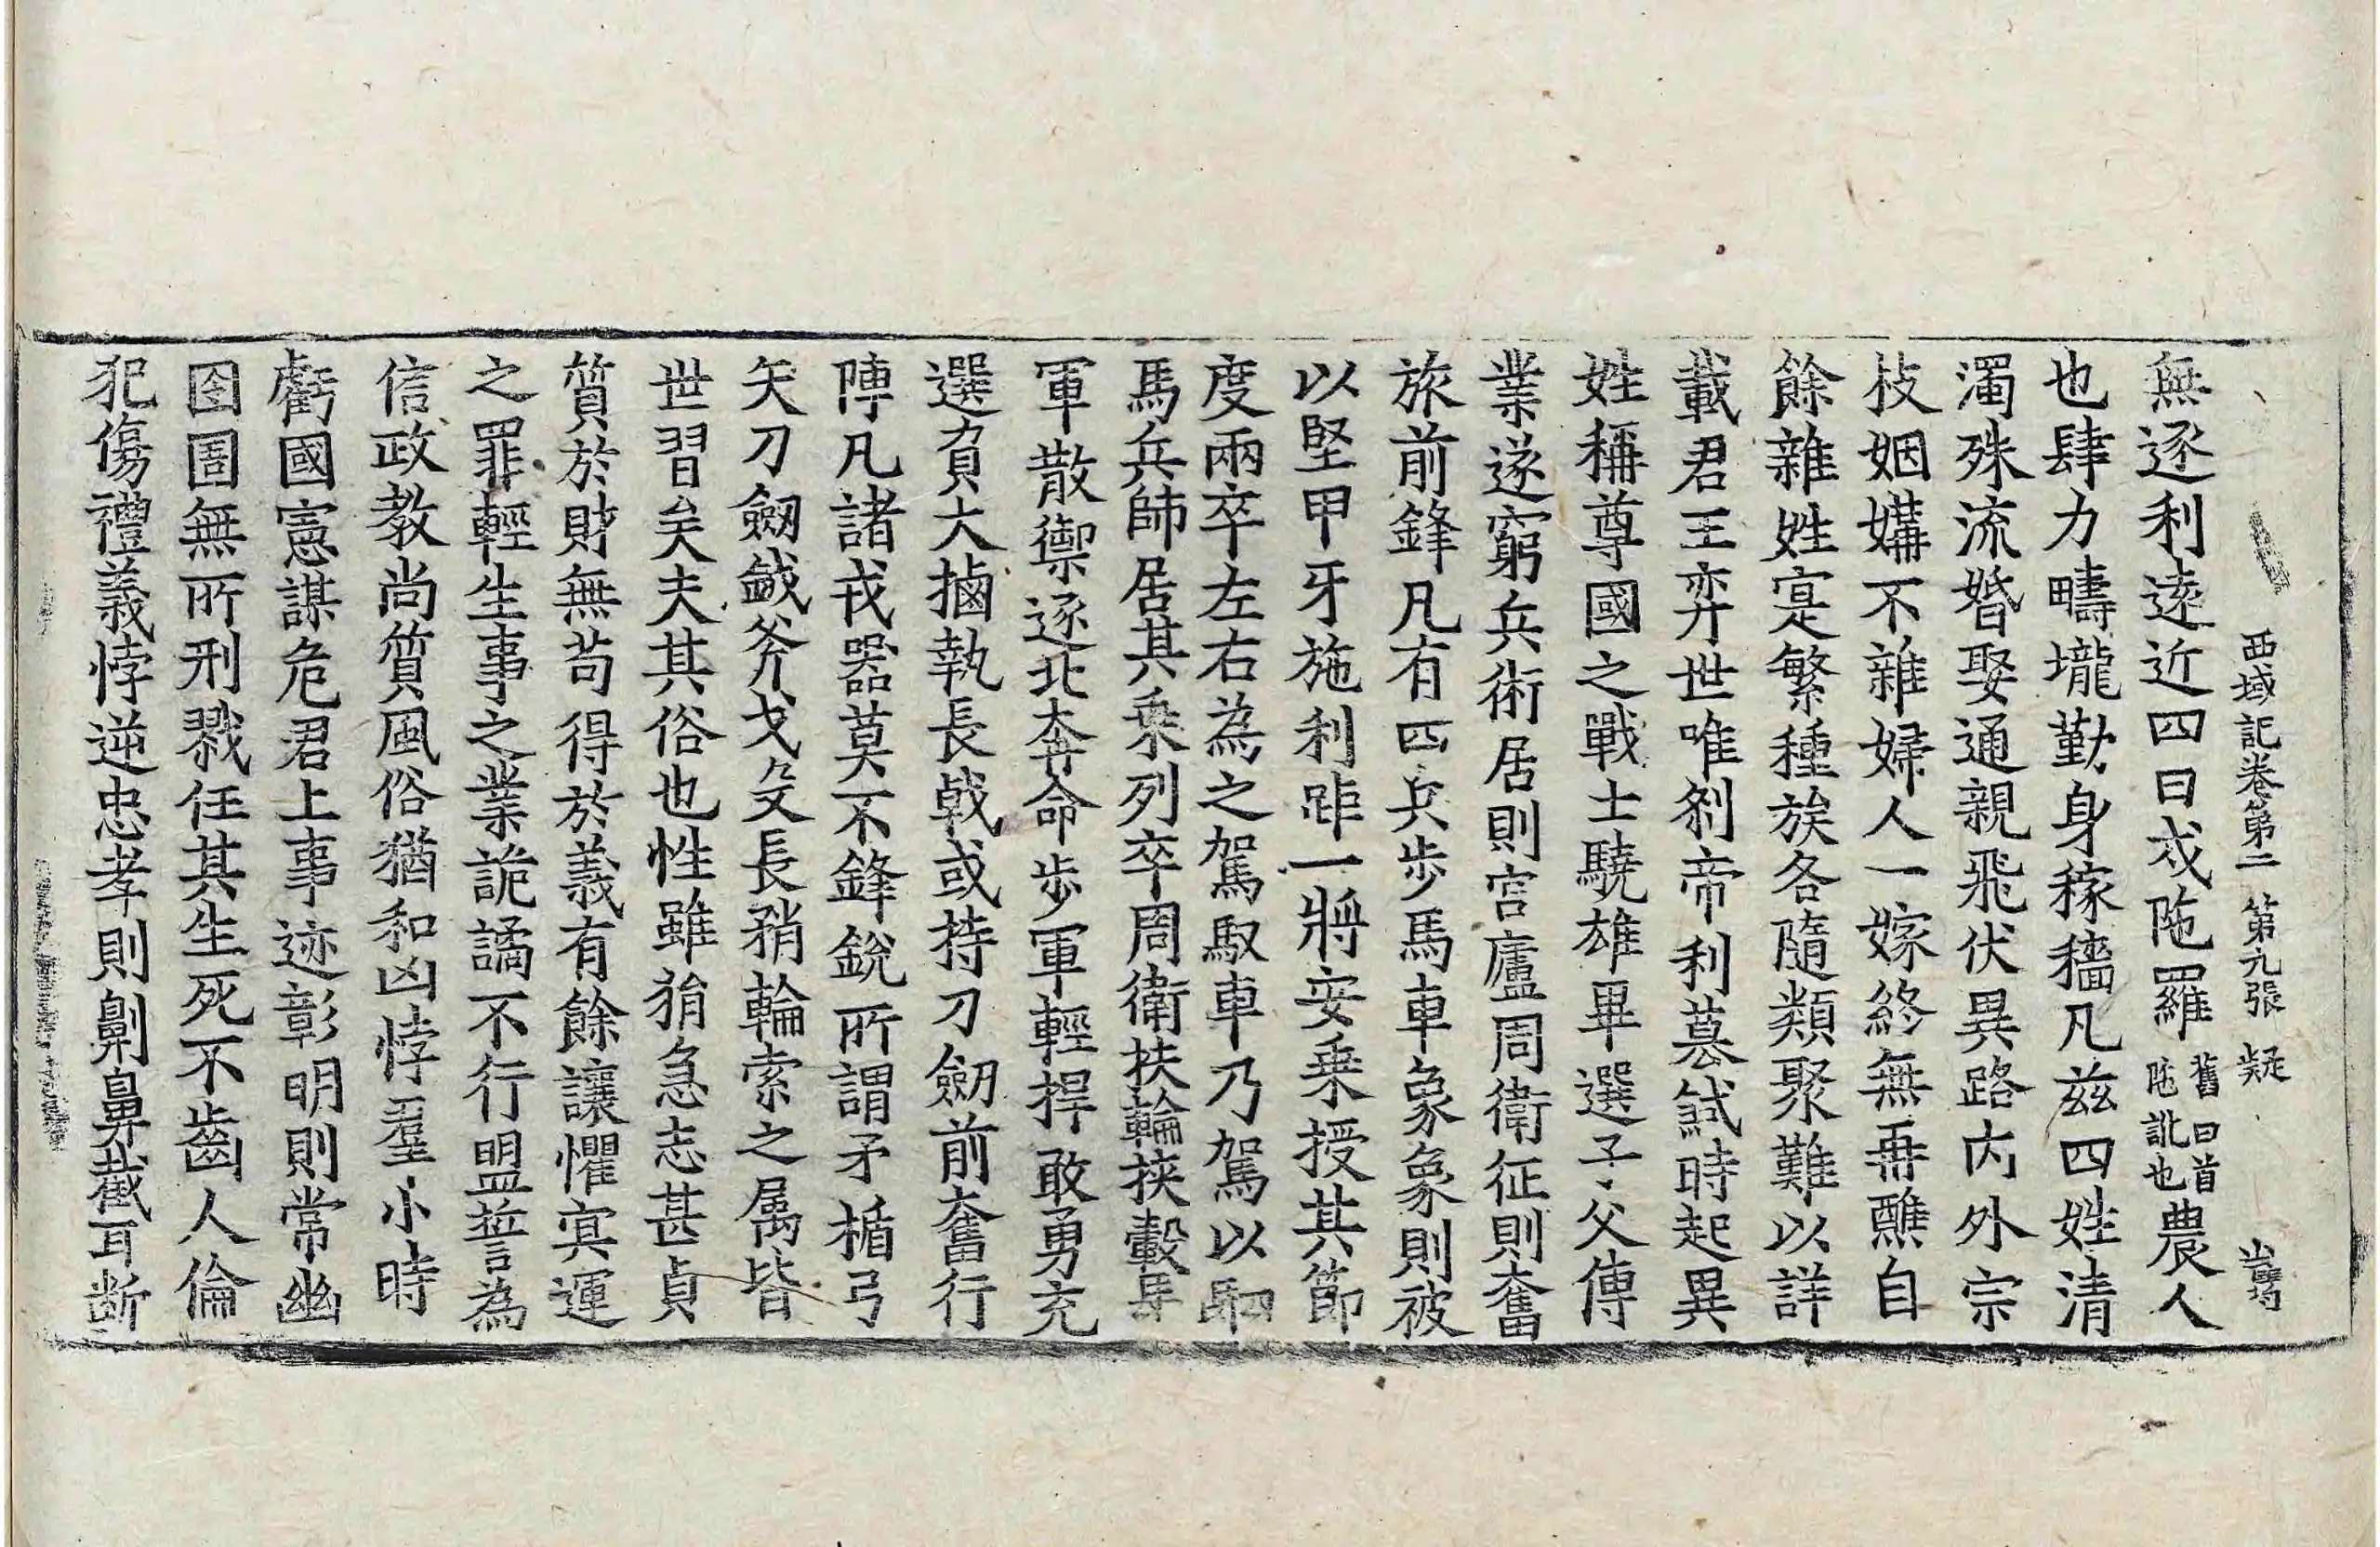 西域記卷第二　第九張　疑
無逐利逺近四曰戍陁羅舊曰首陁訛也農人
也肆力疇壠勤身稼穡凡兹四姓清
濁殊流婚娶通親飛伏異路内外宗
枝姻媾不雜婦人一嫁終無再醮自
餘雜姓寔繁種族各隨類聚難以詳
載君王弈世唯剎帝利簒弒時起異
姓稱尊國之戰士驍雄畢選子父傳
業遂窮兵術居則宫廬周衛征則奮
旅前鋒凡有四兵步馬車象象則被
以堅甲牙施利距一將安乗授其節
度兩卒左右為之駕馭車乃駕以駟
馬兵帥居其乗列卒周衛扶輪挾轂馬
軍散禦逐北奔命步軍輕捍敢勇充
選負大樐執長戟或持刀劒前奮行
陣凡諸戎器莫不鋒銳所謂矛楯弓
矢刀劒鉞斧戈殳長矟輪索之屬皆
世習矣夫其俗也性雖狷急志甚貞
質於財無苟得於義有餘讓懼冥運
之罪輕生事之業詭譎不行盟誓為
信政教尚質風俗猶和凶悖羣小時
虧國憲謀危君上事迹彰明則常幽
囹圄無所刑戮任其生死不齒人倫
犯傷禮義悖逆忠孝則劓鼻截耳断